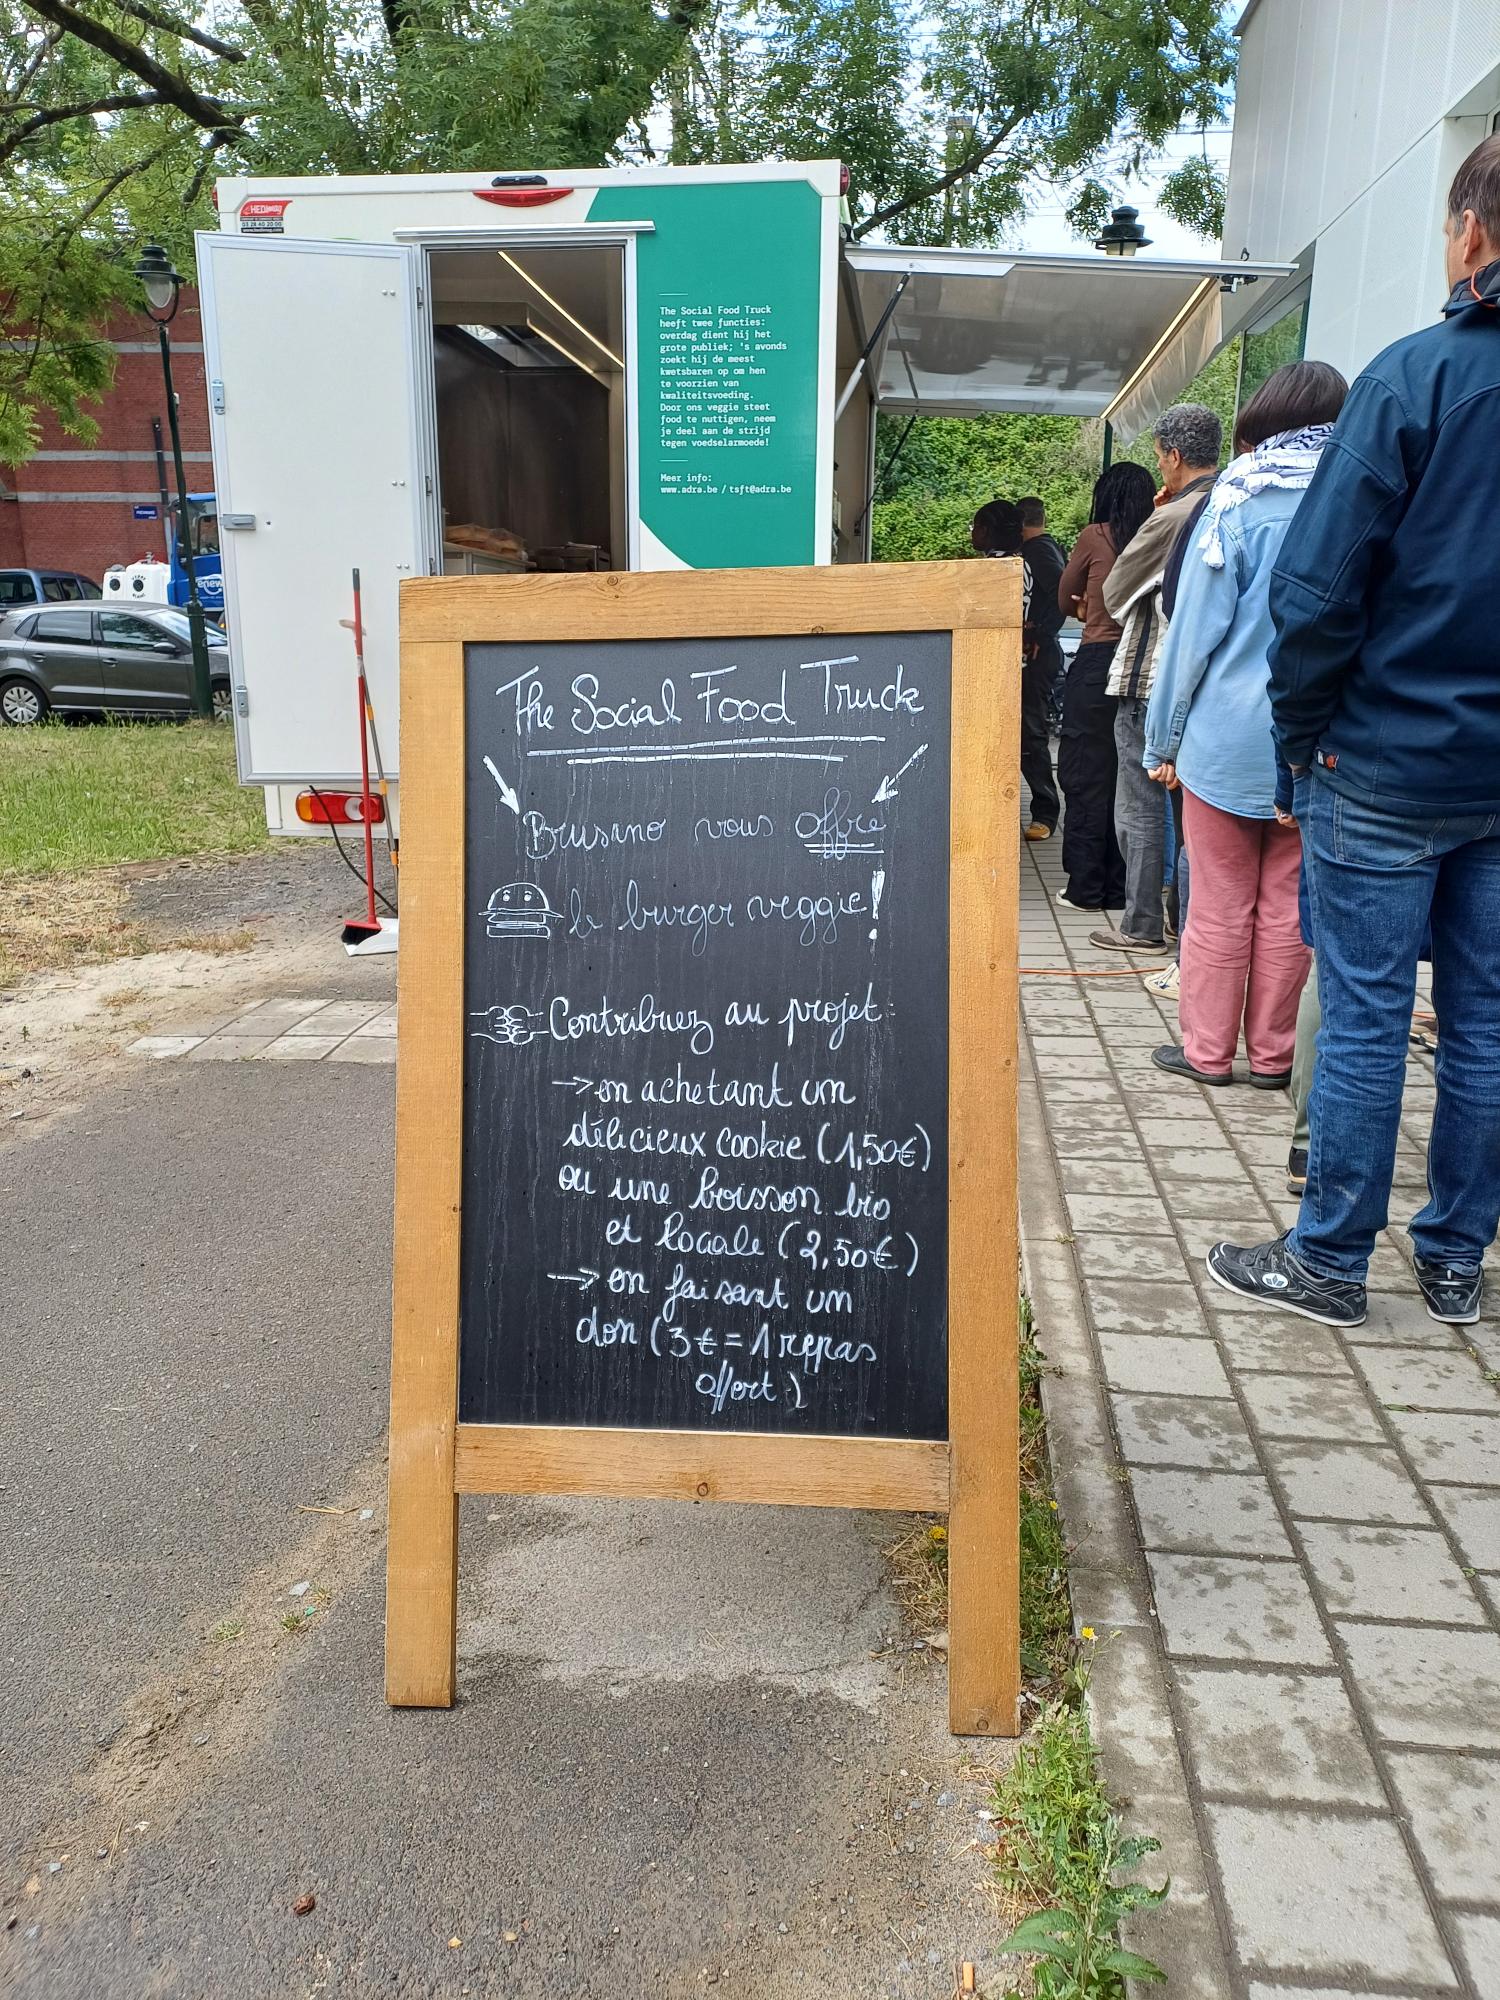 HEDimag
03 28 40 20 00
The Social Food Truck
heeft twee functies:
overdag dient hij het
grote publiek; 's avonds
zoekt hij de meest
kwetsbaren op om hen
te voorzien van
kwaliteitsvoeding.
Door ons veggie steet
food te nuttigen, neem
je deel aan de strijd
tegen voedselarmoede!
Meer info:
www.adra.be / tsft@adra.be
The Social Food Truck
Brusano vous offre
le burger veggie!
Contribuez au projet:
→ en achetant un
délicieux cookie (1,50€)
ou une boisson bio
et locale (2,50€)
→ en faisant un
don (3€ = 1 repas
offert)